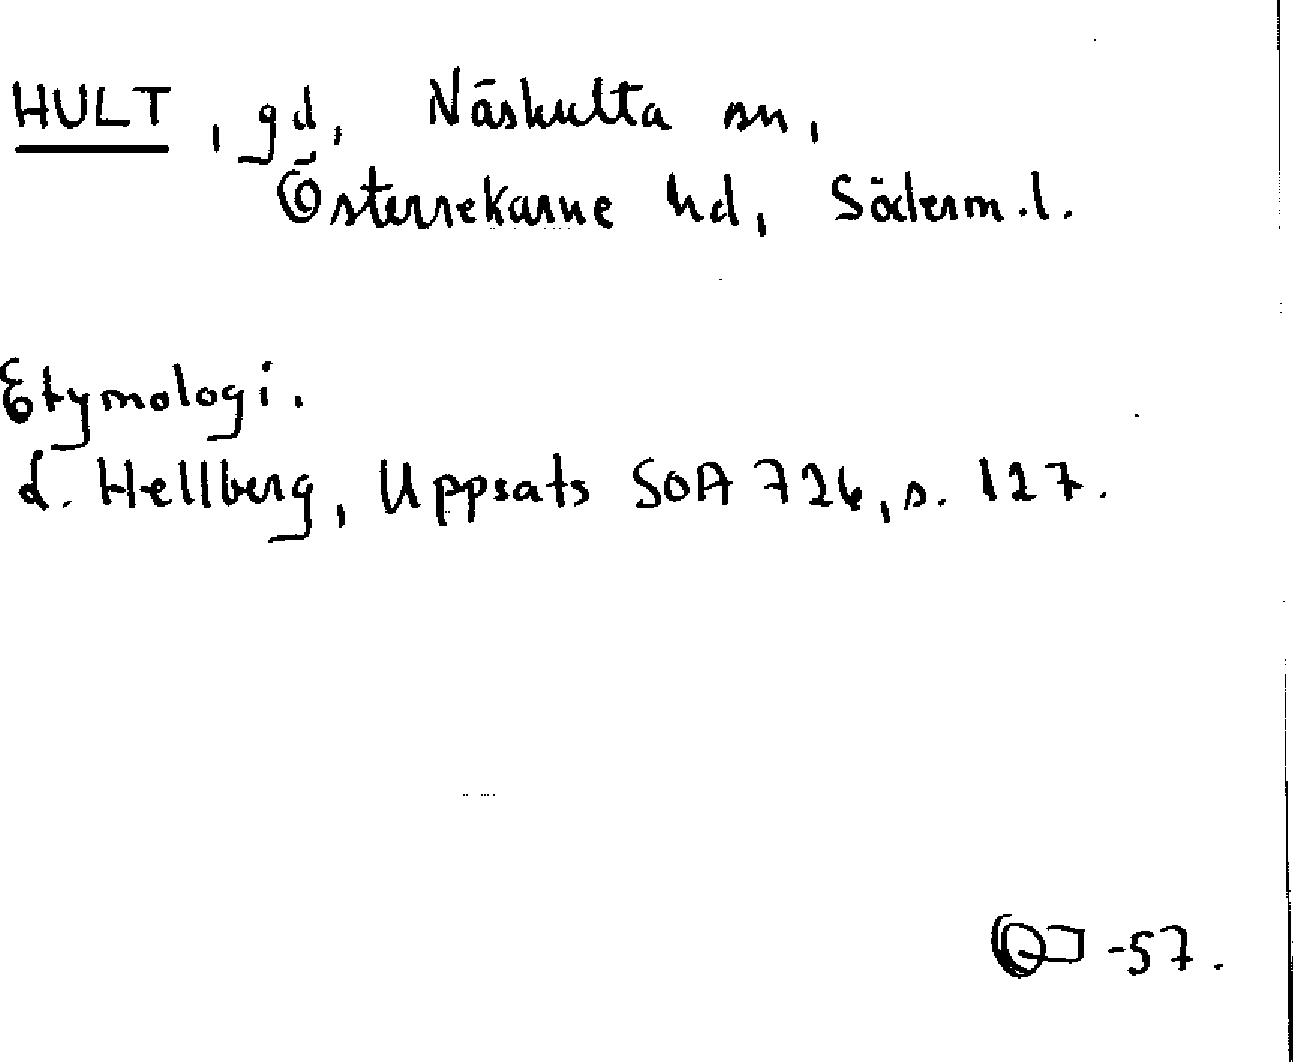 HULT, gd, Näshulta sn,
Österrekarne hd, Söderm.l.
Etymologi.
L. Hellberg, Uppsats SOA 726, s. 127.
-57.